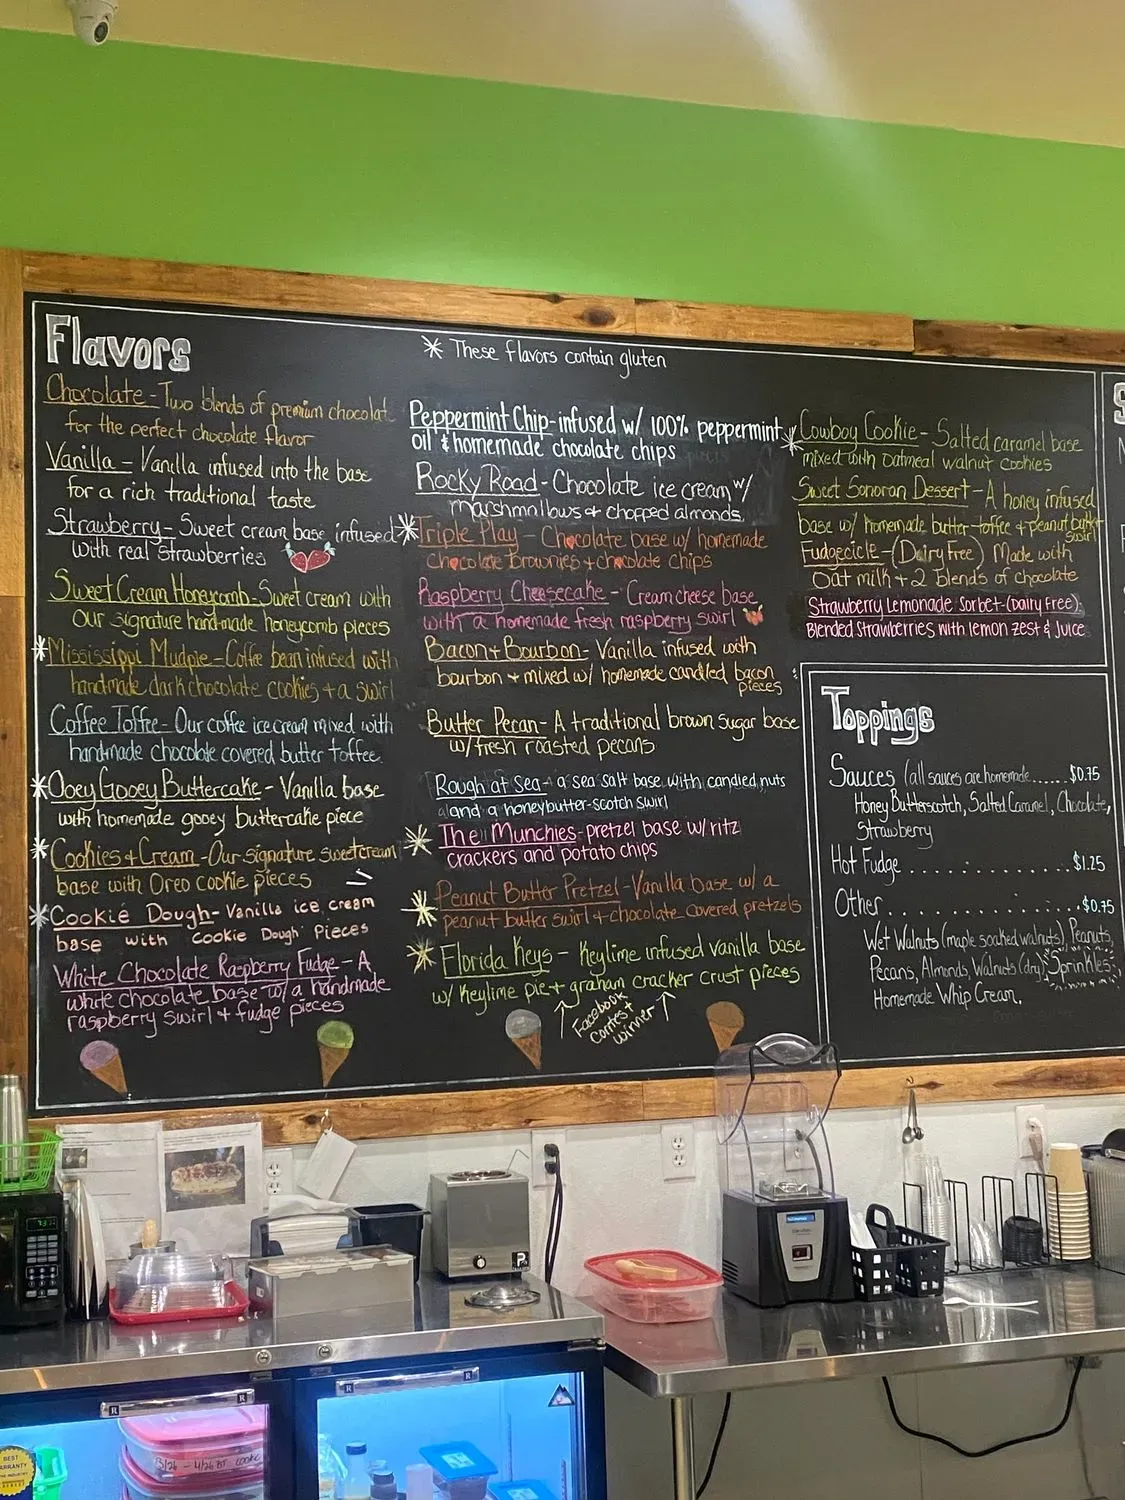 Flavors
Chocolate - Two blends of premium chocolat
for the perfect chocolate flavor
Vanilla - Vanilla infused into the base
for a rich traditional taste
Strawberry - Sweet cream base infused
with real strawberries
Sweet Cream Honeycomb - Sweet cream with
our signature hand-made honeycomb pieces
* Mississippi Mudpie - Coffee bean infused with
handmade dark chocolate cookies + a swirl
Coffee Toffee - Our coffee ice cream mixed with
handmade chocolate covered butter toffee.
* Ooey Gooey Buttercake - Vanilla base
with homemade gooey buttercake piece
* Cookies + Cream - Our signature sweetcream
base with Oreo cookie pieces
* Cookie Dough - Vanilla ice cream
base with cookie Dough Pieces
White Chocolate Raspberry Fudge - A
white chocolate base w/ a handmade
raspberry swirl + fudge pieces
* These flavors contain gluten
Peppermint Chip - infused w/ 100% peppermint
oil & homemade chocolate chips
Rocky Road - Chocolate ice cream w/
marshmallows + chopped almonds.
* Triple Play - Chocolate base w/ homemade
chocolate brownies + chocolate chips
Raspberry Cheesecake - Cream cheese base
with a homemade fresh raspberry swirl
Bacon + Bourbon - Vanilla infused with
bourbon + mixed w/ homemade candied bacon
pieces
Butter Pecan - A traditional brown sugar base
w/ fresh roasted pecans
Rough at Sea - a sea salt base with candied nuts
and a honeybutter-scotch swirl
* The Munchies - pretzel base w/ ritz
crackers and potato chips
* Peanut Butter Pretzel - Vanilla base w/ a
peanut butter swirl + chocolate covered pretzels
* Florida Keys - Keylime infused vanilla base
w/ Keylime pie + graham cracker crust pieces
Facebook
contest
winner
* Cowboy Cookie - Salted caramel base
mixed with oatmeal walnut cookies
Sweet Sonoran Dessert - A honey infused
base w/ homemade butter-toffee + peanut butter
swirl
Fudgecicle - (Dairy Free) Made with
Oat milk + 2 blends of chocolate
Strawberry Lemonade Sorbet - (Dairy Free).
Blended Strawberries with lemon zest & juice
Toppings
Sauces (all sauces are homemade......$0.75
Honey Butterscotch, Salted Caramel, Chocolate,
Strawberry
Hot Fudge..............$1.25
Other..................$0.75
Wet Walnuts (maple soaked walnuts), Peanuts,
Pecans, Almonds, Walnuts (dry), Sprinkles
Homemade Whip Cream.